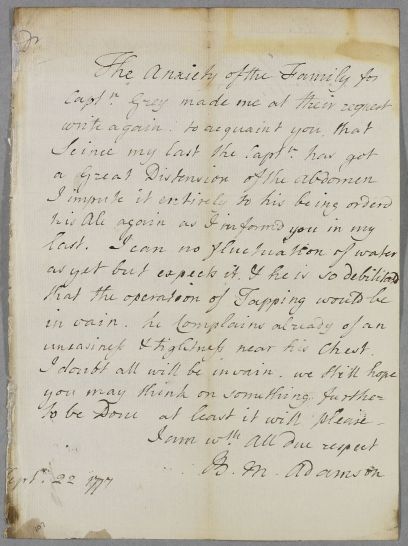 Dr
The Anxiety of the Family for
Captn Grey made me at their request
write again to acquaint you, that
Seince my last the Captn. has got
a Great Distension of the Abdomen
I impute it entirely to his being orderd
his Ale again as I informd you in my
last. I can no fluctuation of water
as yet but expects it & he is so debilitatd
that the operation of Tapping would be
in vain. he Complains already of an
uneasiness & tightness near his Chest.
I doubt all will be in vain. we still hope
you may think on something further
to be Done at least it will please
I am wth All due respect
B. M. Adamson
Septr. 22 1777